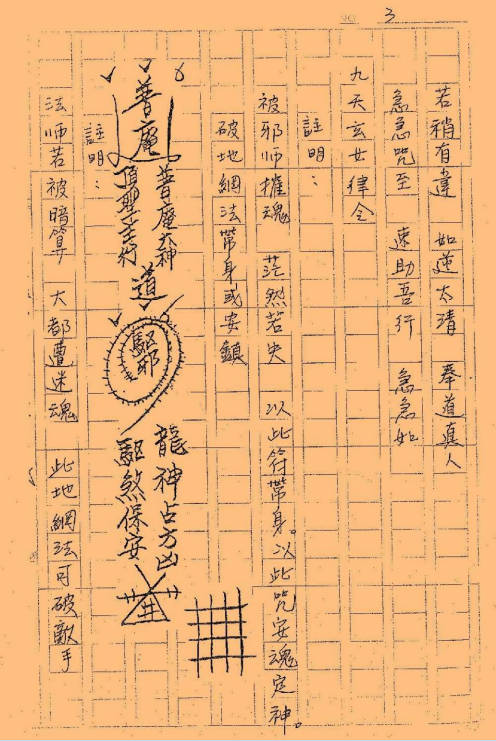 3
若稍有違 如違太清 奉道真人
急急咒至 速助吾行 急急如
九天玄女律令
註明:
被邪師攝魂 茫然若失 以此符帶身。以此咒安魂定神。
破地網法帶身或安鎮
普庵
普庵大神
道
驅邪
龍神占方凶
驅煞保安
註明:
法师若被暗算 大都遭迷魂 此地網法可破敵手